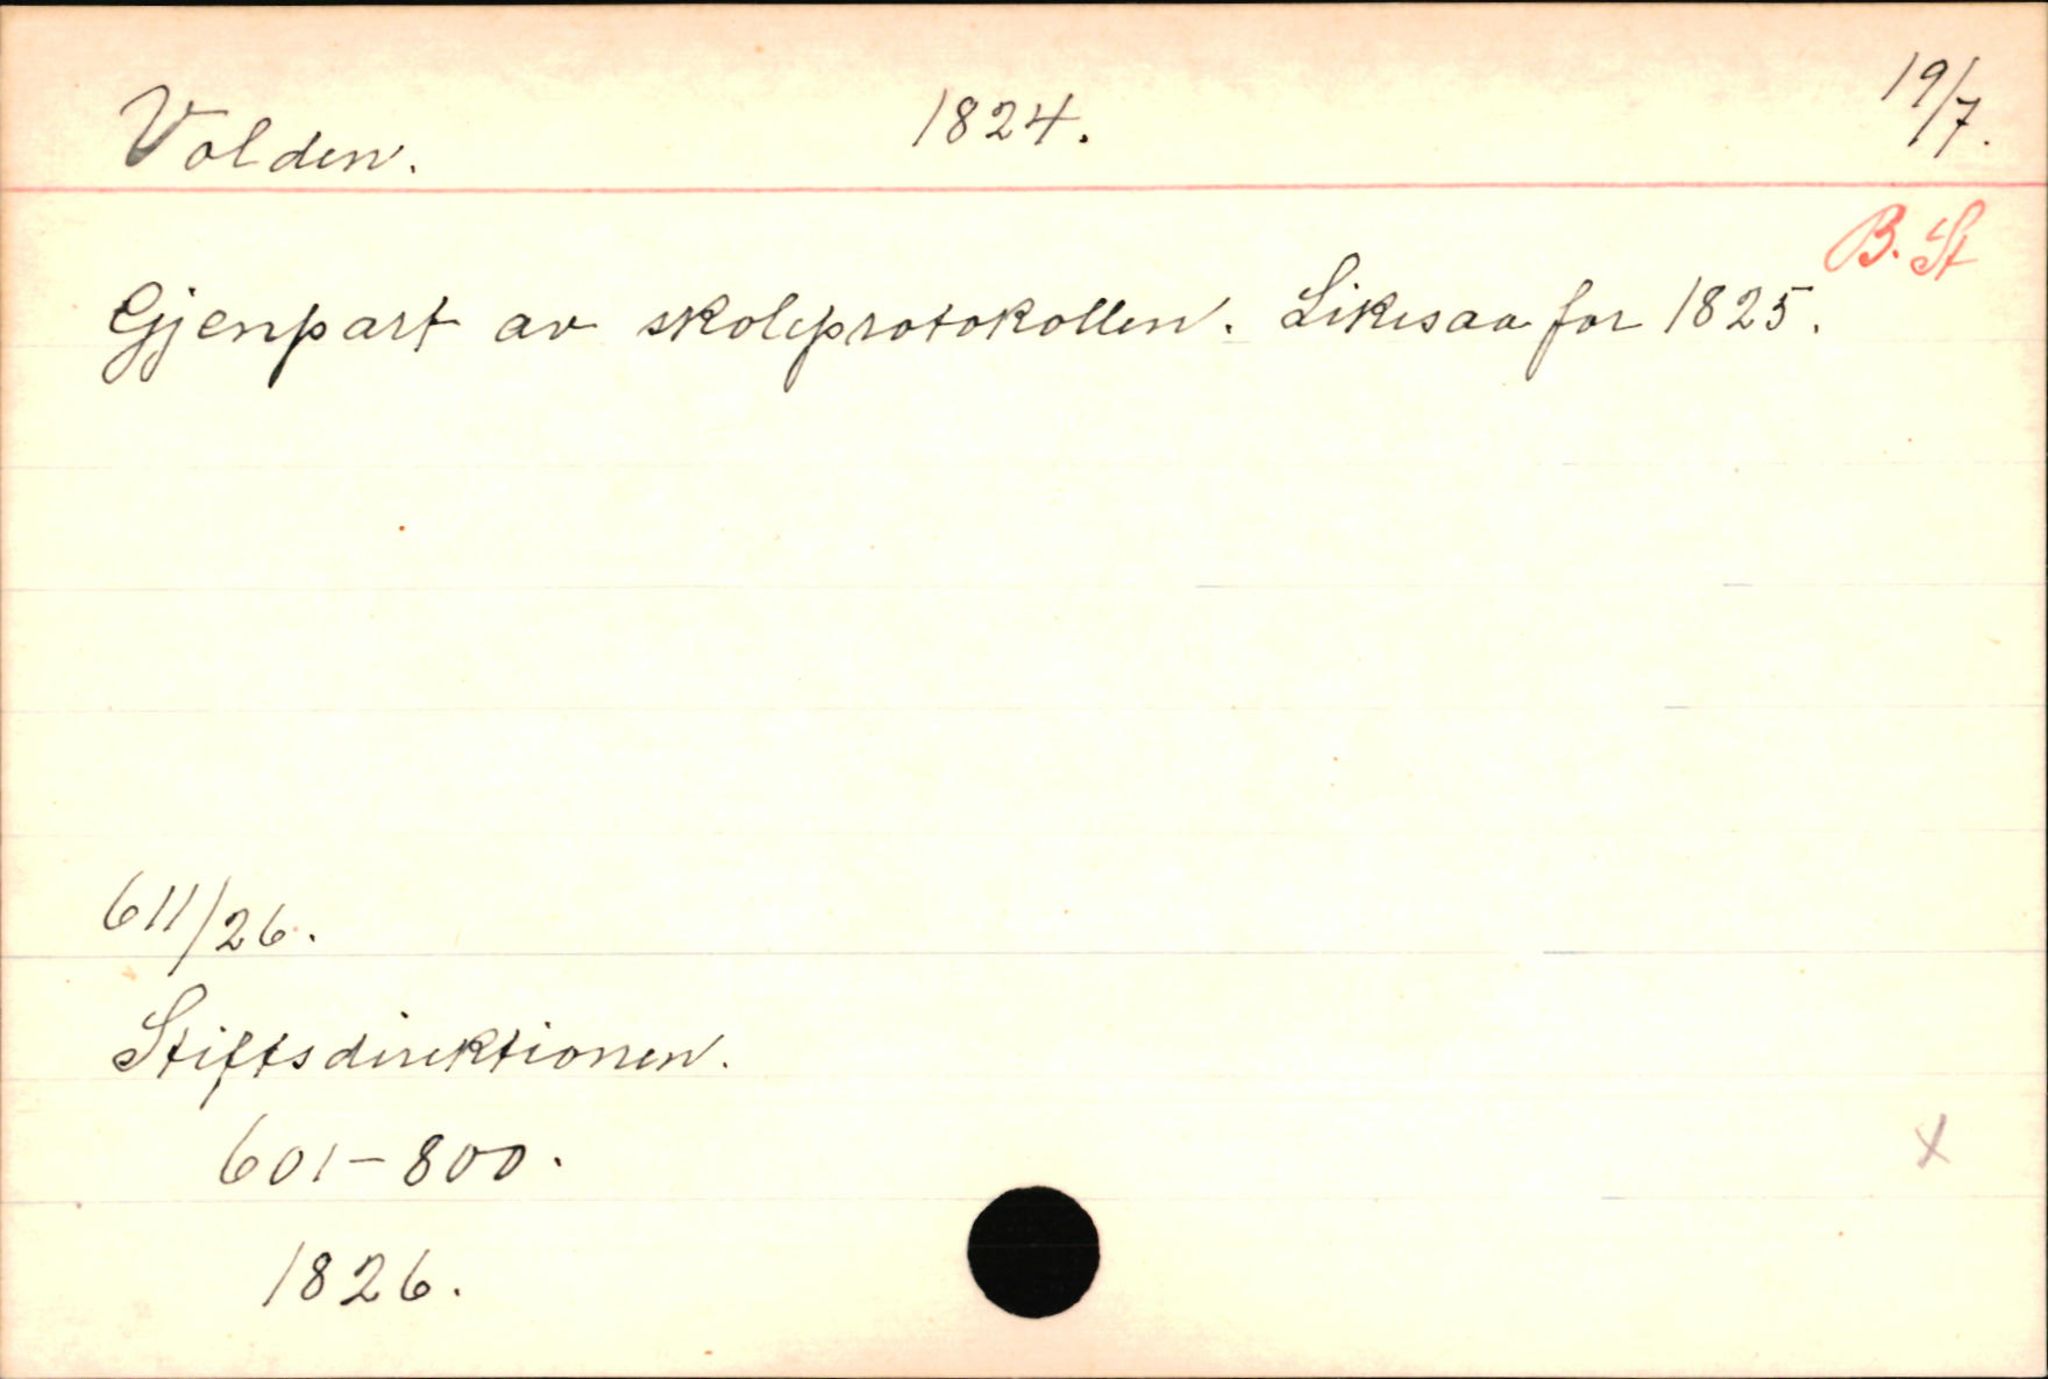 Volden. 1824. 19/7.
B. St
Gjenpart av skoleprotokollen. Likesaa for 1825.
611/26.
Stiftsdirektionen.
601-800.
1826.
x